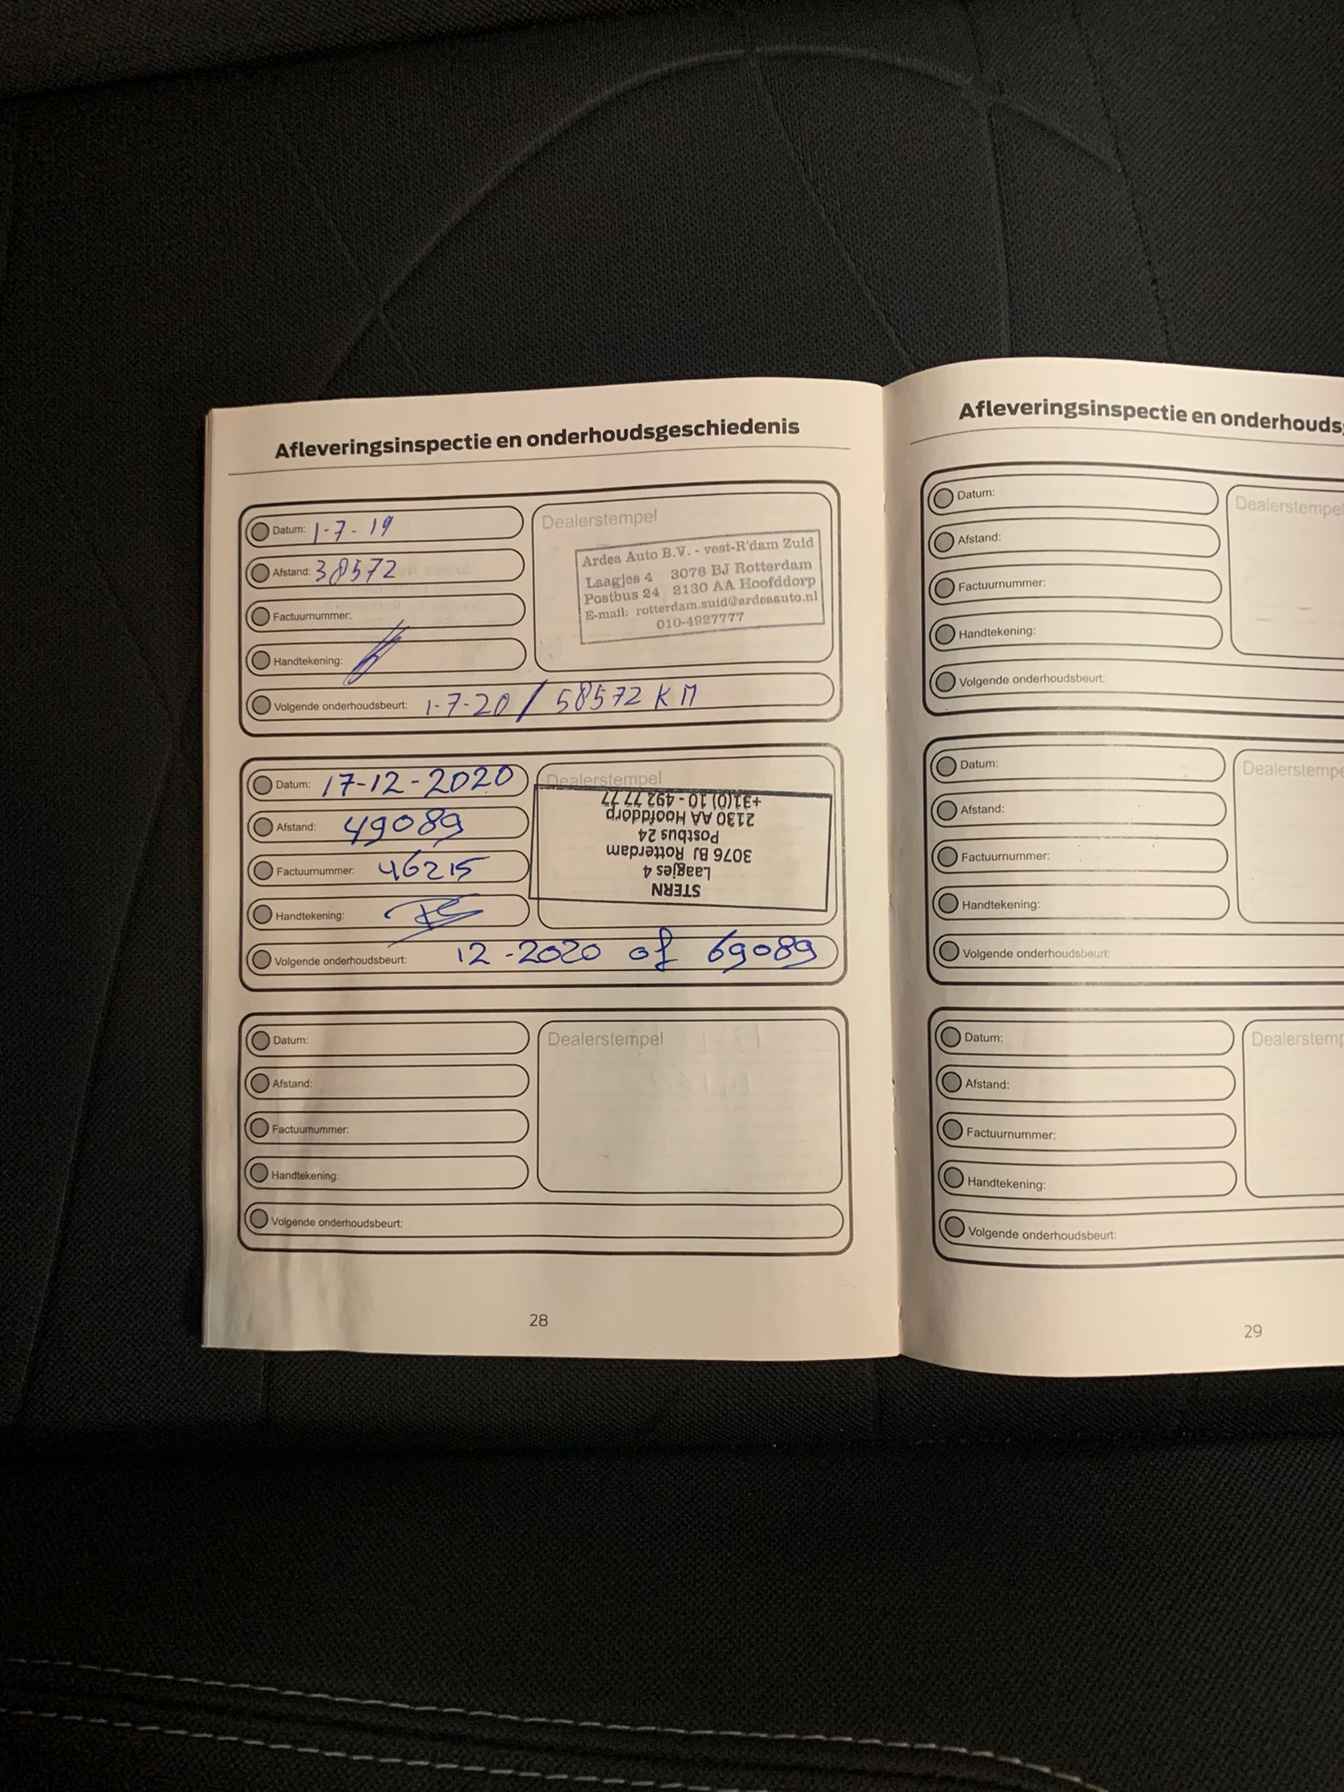 Afleveringsinspectie en onderhoudsgeschiedenis
Datum: 1-7-19
Afstand: 38572
Factuurnummer:
Handtekening:
Volgende onderhoudsbeurt: 1-7-20 / 58572 KM
Dealerstempel
Ardea Auto B.V. - vest-R'dam Zuid
Laagjes 4 3076 BJ Rotterdam
Postbus 24 2130 AA Hoofddorp
E-mail: rotterdam.zuid@ardeaauto.nl
010-4927777
Datum: 17-12-2020
Afstand: 49089
Factuurnummer: 46215
Handtekening:
Volgende onderhoudsbeurt: 12-2020 of 69089
Dealerstempel
STERN
Laagjes 4
3076 BJ Rotterdam
Postbus 24
2130 AA Hoofddorp
+31(0) 10 - 492 77 77
Datum:
Afstand:
Factuurnummer:
Handtekening:
Volgende onderhoudsbeurt:
Dealerstempel
28
Afleveringsinspectie en onderhouds
Datum:
Afstand:
Factuurnummer:
Handtekening:
Volgende onderhoudsbeurt:
Dealerstempel
Datum:
Afstand:
Factuurnummer:
Handtekening:
Volgende onderhoudsbeurt:
Dealerstempe
Datum:
Afstand:
Factuurnummer:
Handtekening:
Volgende onderhoudsbeurt:
Dealerstemp
29